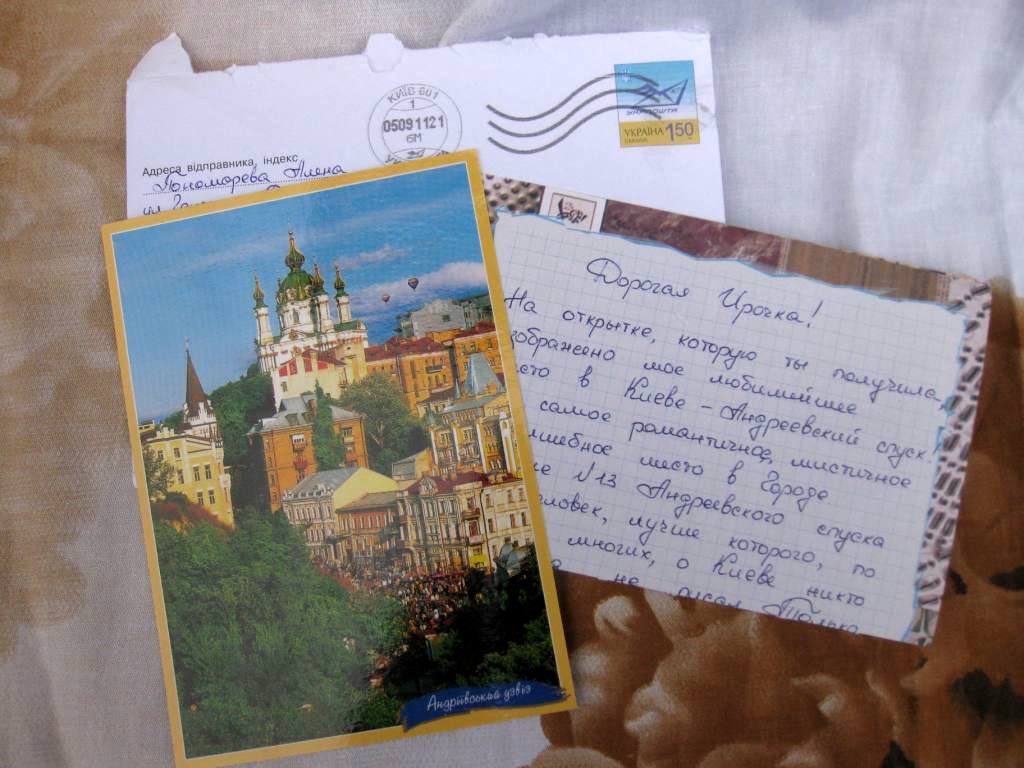 КИЇВ 601
1
05091121
6М
УКРПОШТА
УКРАЇНА 1.50
UKRAINE
Адреса відправника, індекс
Пономорева Алена
ул
Дорогая Ирочка!
На открытке, которую ты получила,
зображено мое любимейшее
сто в Киеве - Андреевский спуск!
самое романтичное, мистичное
лшебное место в Городе
ме N13 Андреевского спуска
ловек, лучше которого, по
многих, о Киеве никто
не писал Только
Андріївський узвіз